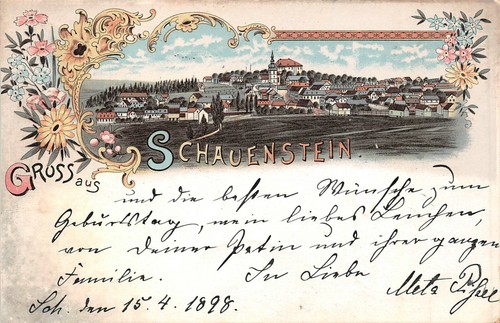 SCHAUENSTEIN.
GRUSS aus
und die besten Wünsche zum
Geburtstag, mein liebes Lenchen,
von Deiner Patin und ihrer ganzen
Familie. In Liebe
Sch. den 15.4.1898. Meta